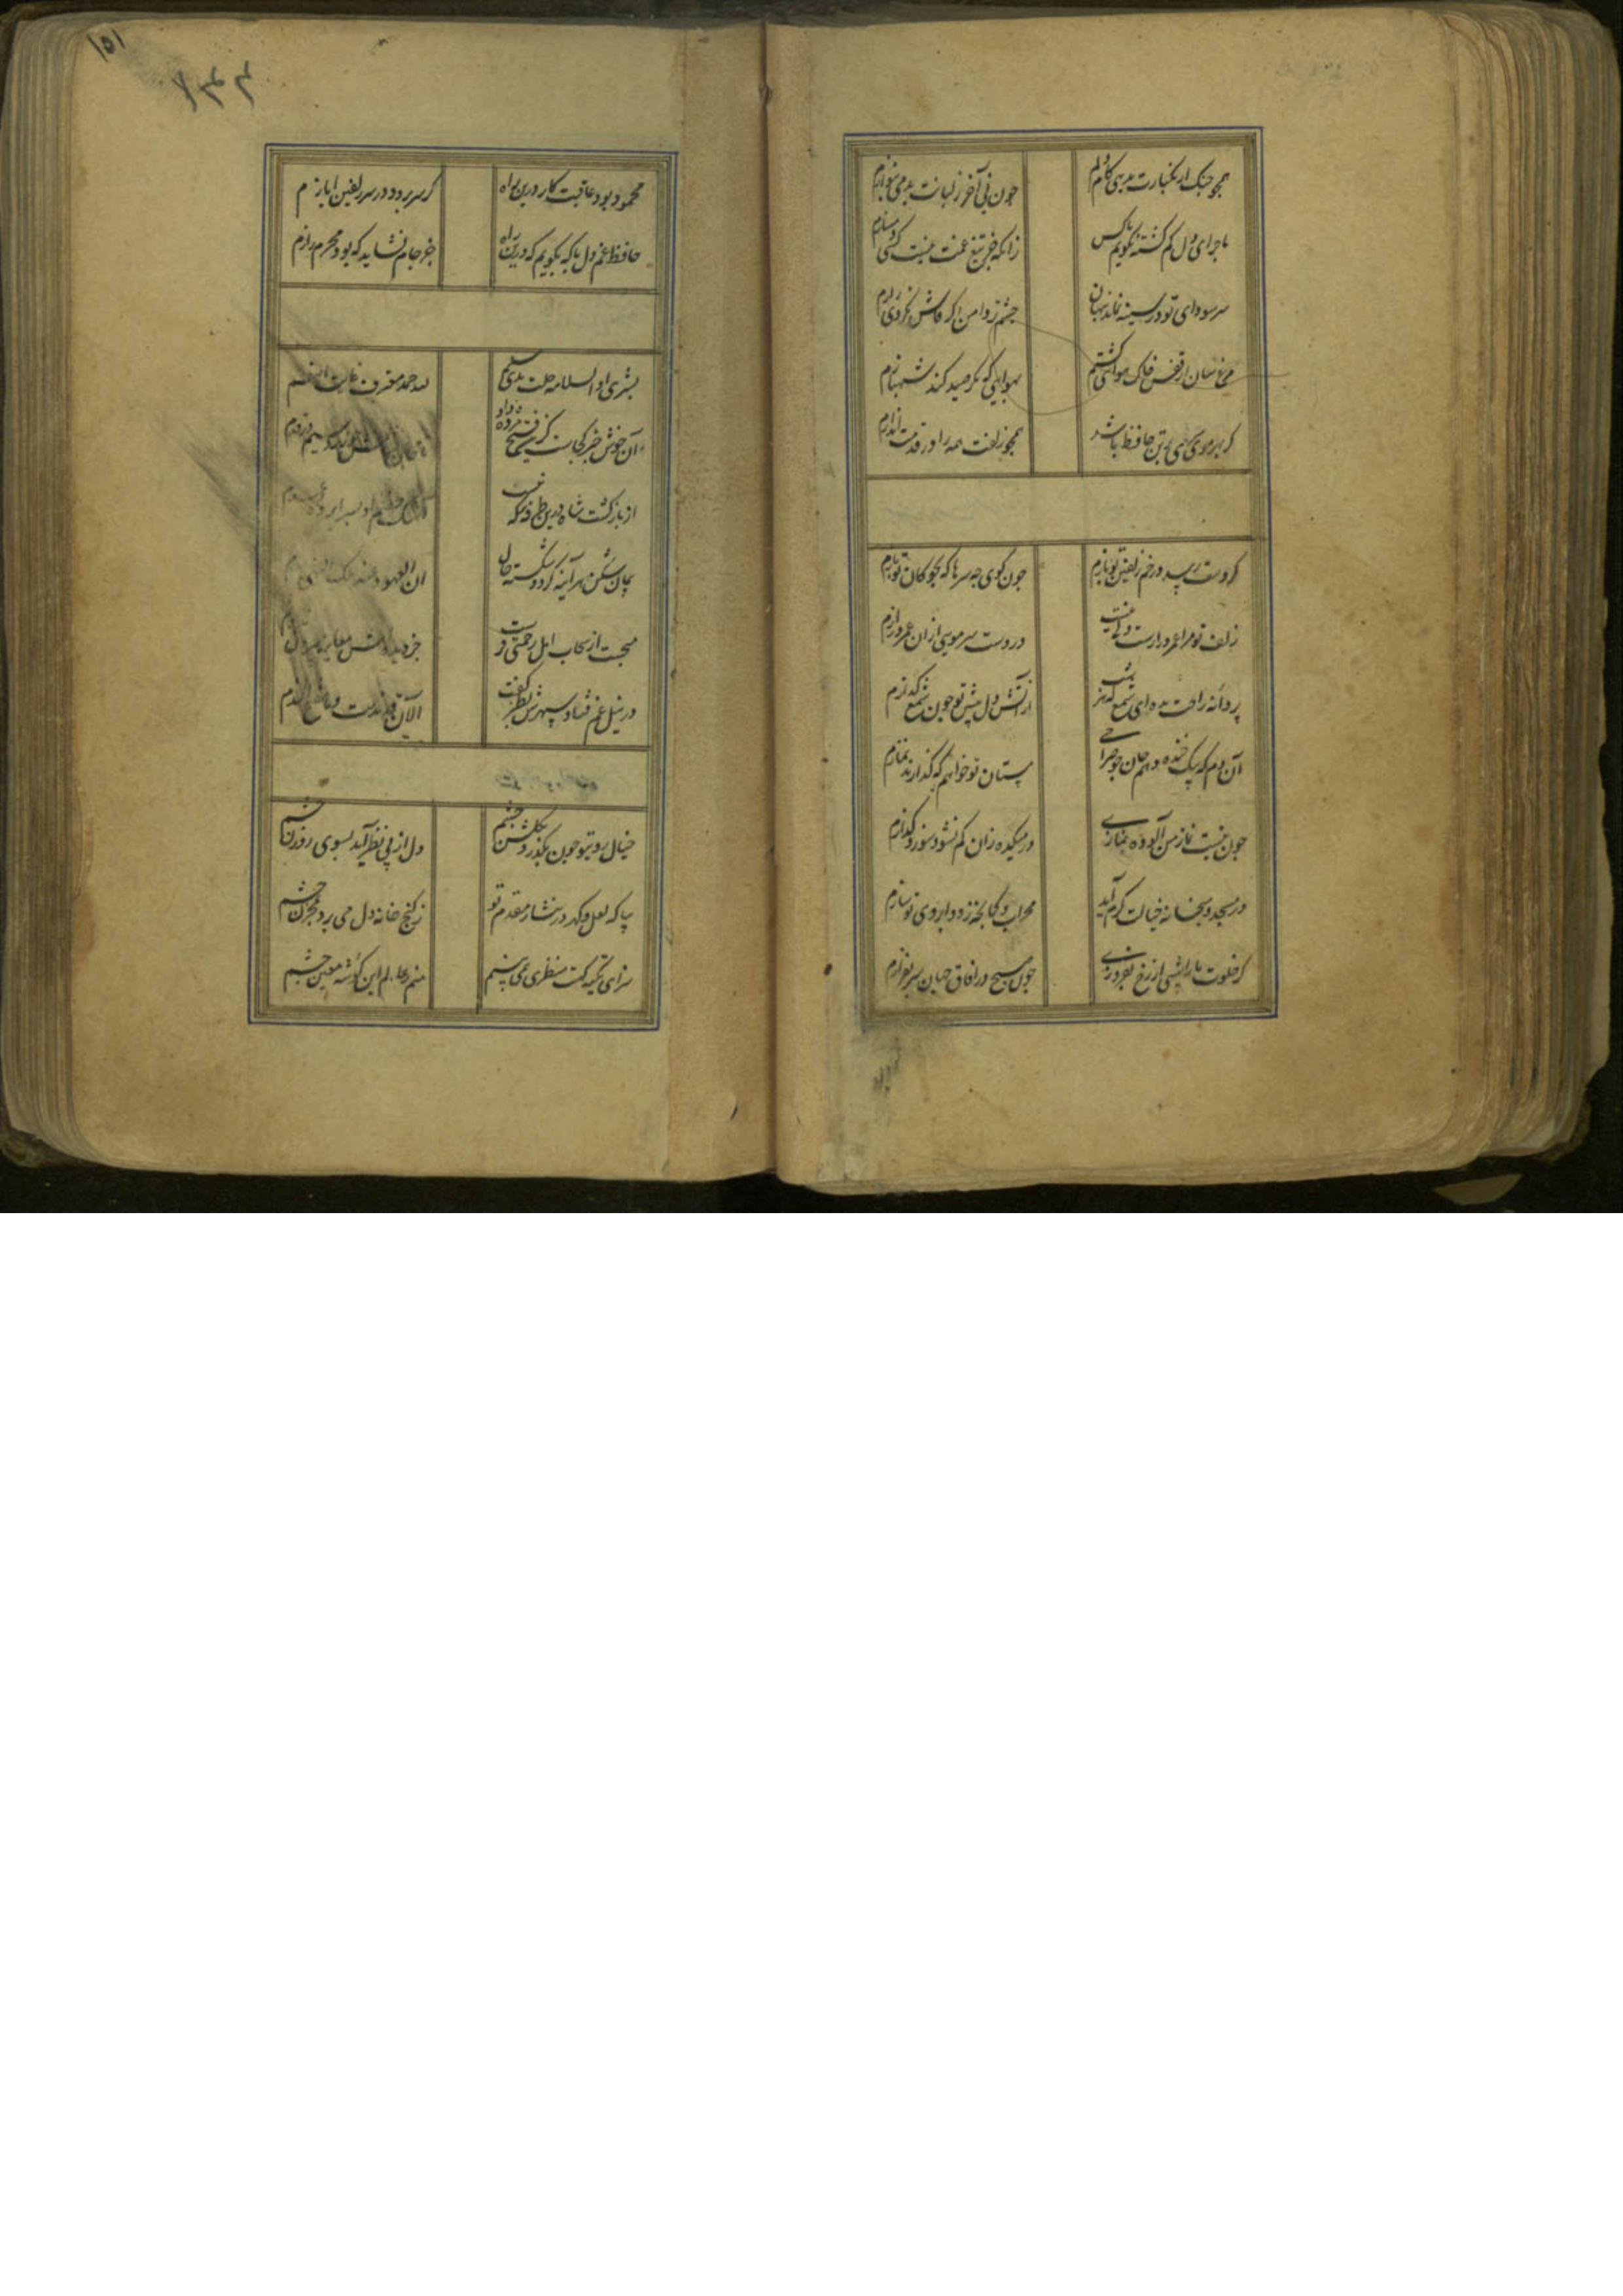 همچو چنک ار بکنارت ندهی کام دلم
چون نی آخر ز لبانت بدمی بنوازم
ماجرای دل کم کشته نکویم با کس
زانکه جز تیغ غمت نیست کسی دمسازم
سر سودای تو در سینه بماند پنهان
چشم تر دامن اکر فاش نکردی رازم
مرغ سان از قفس خاک هوایی کشتم
بهوایی که مکر صید کند شهبازم
کر بهر موی سری بر تن حافظ باشد
همچو زلفت همه را در قدمت اندازم
کر دست رسد در خم زلفین تو بازم
چون کوی چه سرها که بچوکان تو بازم
زلف تو مرا عمر درازست ولی نیست
در دست سر مویی از ان عمر درازم
پروانه راحت بده ای شمع که امشب
از آتش دل پیش تو چون شمع کدازم
آن دم که بیک خنده دهم جان چو صراحی
مستان تو خواهم که کذارند نمازم
چون نیست نماز من آلوده نمازی
در میکده زان کم نشود سوز و کدازم
در مسجد و میخانه خیالت اکر آید
محراب و کمانچه ز دو ابروی تو سازم
کر خلوت ما را شبی از رخ بفروزی
چون صبح در آفاق جهان سر بفرازم
۱۵۱
محمود بود عاقبت کار درین راه
کر سر برود در سر زلفین ایازم
حافظ غم دل با که بکویم که درین راه
جز جام نشاید که بود محرم رازم
بشری اذ السلامه حلت بذی سلم
لله حمد معترف غایت النعم
آن خوش خبر کجاست کزین فتح مژده داد
از بازکشت شاه درین طرفه
پیمان شکن هر آینه کردد شکسته حال
ان العهود
میجست از سحاب امل رحمتی
جز دیده اش
در نیل غم فتاد سپهرش بطنز کفت
الآن قد ندمت و ما ینفع الندم
خیال روی تو چون بکذرد بکلشن چشم
دل از پی نظر آید بسوی روزن چشم
بیا که لعل و کهر در نثار مقدم تو
ز کنج خانه دل می برد بمخزن چشم
سزای تکیه کهت منظری نمی بینم
منم ز عالم این کوشه معین چشم